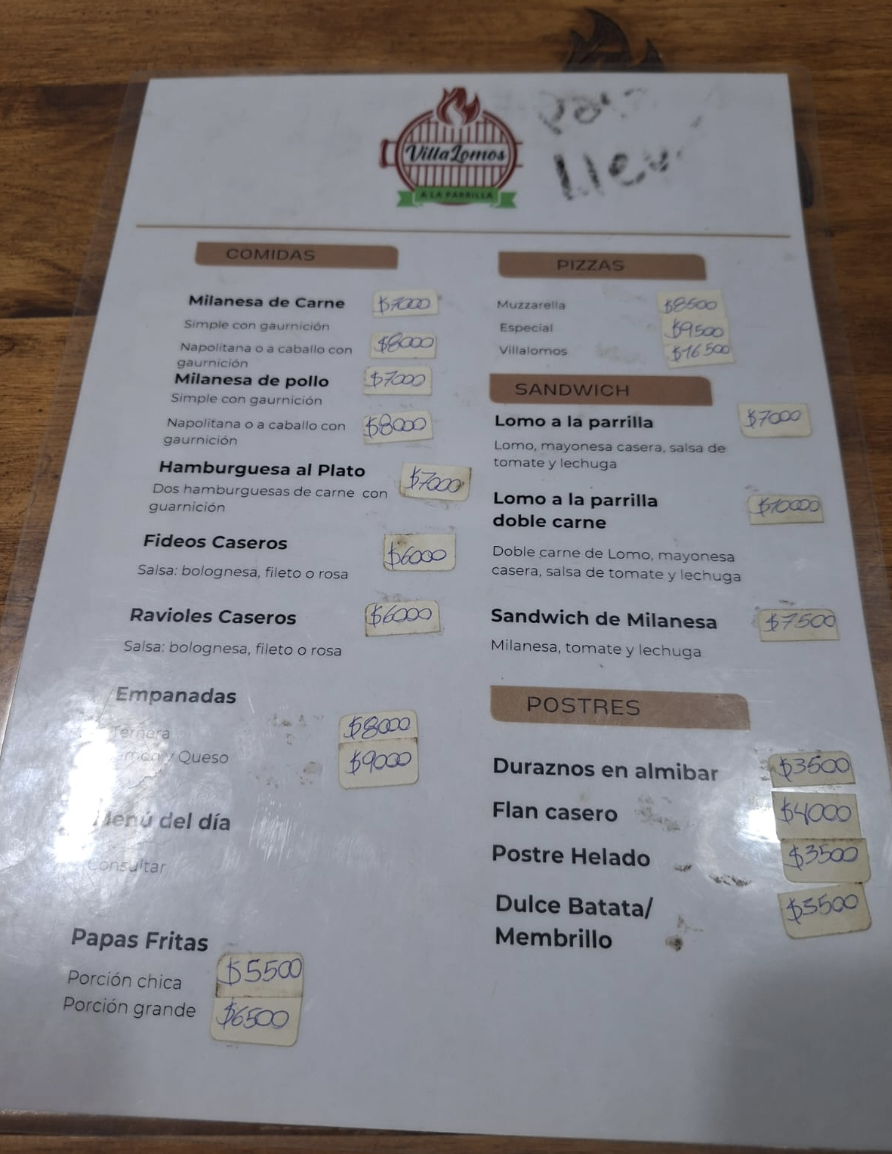 VillaLomos
A LA PARRILLA
COMIDAS
Milanesa de Carne $7000
Simple con gaurnición
Napolitana o a caballo con $8000
gaurnición
Milanesa de pollo $7000
Simple con gaurnición
Napolitana o a caballo con $8000
gaurnición
Hamburguesa al Plato $7000
Dos hamburguesas de carne con
guarnición
Fideos Caseros $6000
Salsa: bolognesa, fileto o rosa
Ravioles Caseros $6000
Salsa: bolognesa, fileto o rosa
Empanadas
Ternera $8000
y Queso $9000
Menú del día
Consultar
Papas Fritas
Porción chica $5500
Porción grande $6500
PIZZAS
Muzzarella $8500
Especial $9500
Villalomos $16500
SANDWICH
Lomo a la parrilla $7000
Lomo, mayonesa casera, salsa de
tomate y lechuga
Lomo a la parrilla
doble carne $10000
Doble carne de Lomo, mayonesa
casera, salsa de tomate y lechuga
Sandwich de Milanesa $7500
Milanesa, tomate y lechuga
POSTRES
Duraznos en almibar $3500
Flan casero $4000
Postre Helado $3500
Dulce Batata/ $3500
Membrillo